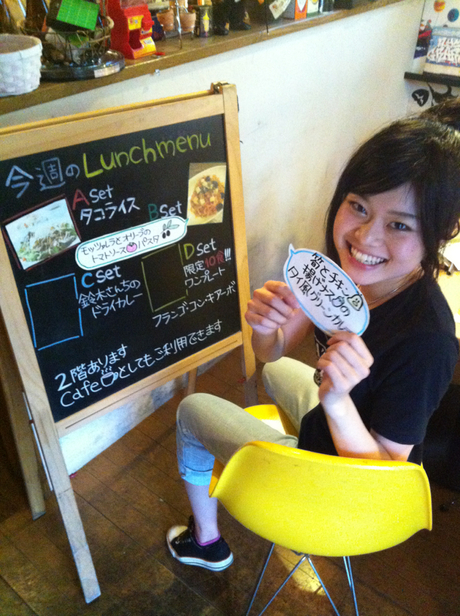 今週のLunch menu
A set
タコライス
B set
モッツァレラとオリーブの
トマトソースパスタ
C set
鈴木さんちの
ドライカレー
D set
限定10食!!!
ワンプレート
フランゴ・コン・キアーボ
2階あります
Cafeとしてもご利用できます
茄とチキン
揚げナスの
タイ風グリーンカレー